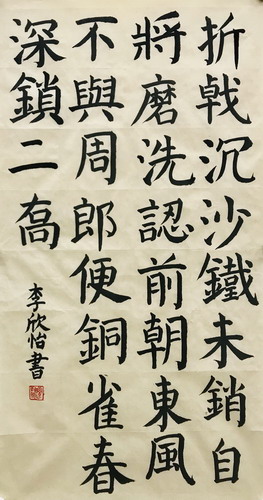 折戟沉沙鐵未銷自
將磨洗認前朝東風
不與周郎便銅雀春
深鎖二喬
李欣怡書